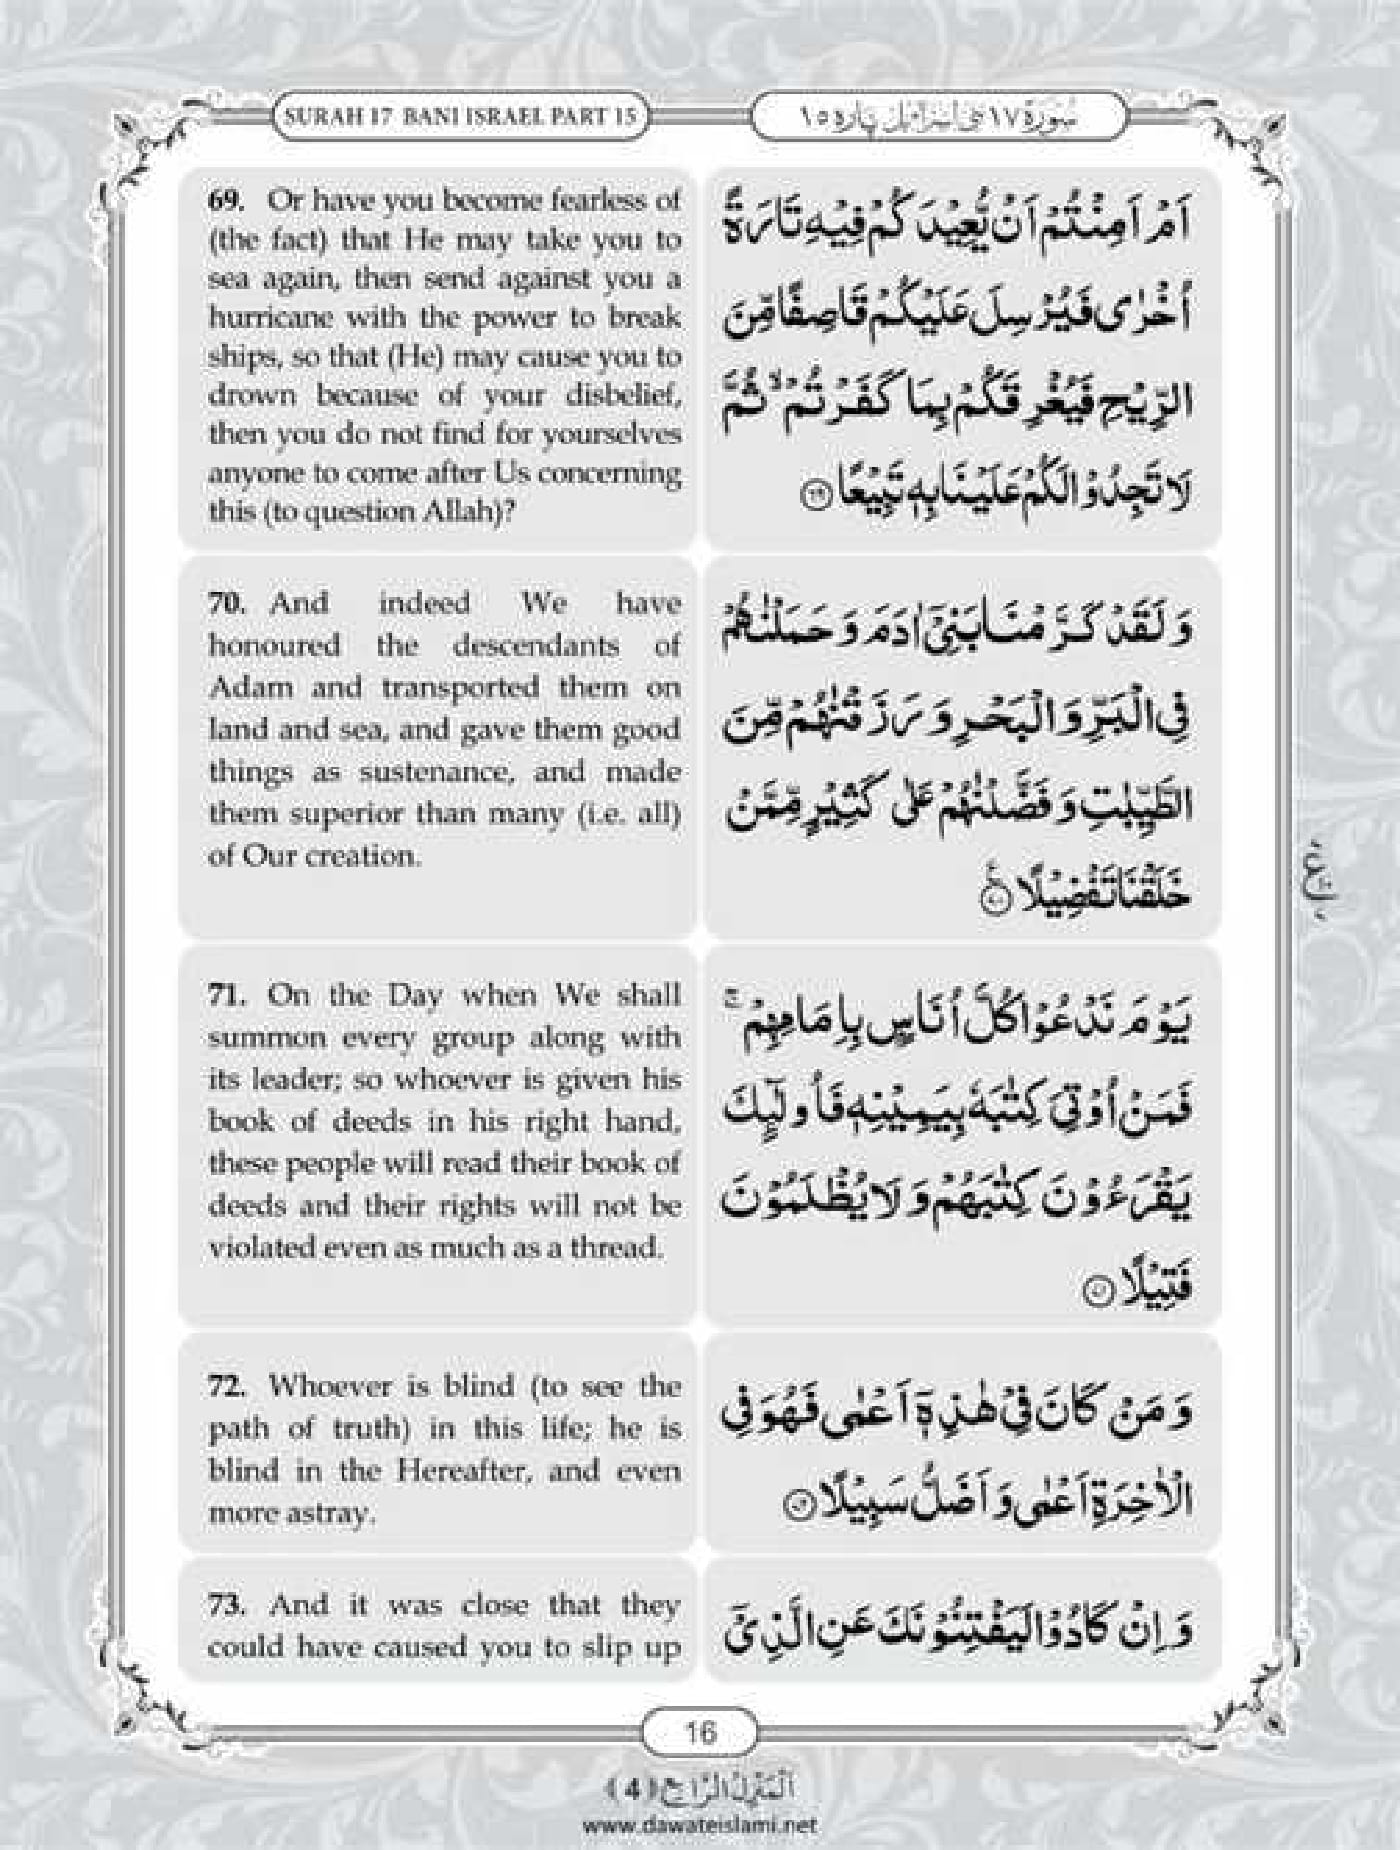 SURAH 17 BANI ISRAEL PART 15
سُورَة ١٧ بنی اسراءیل پاره ١٥
69. Or have you become fearless of
(the fact) that He may take you to
sea again, then send against you a
hurricane with the power to break
ships, so that (He) may cause you to
drown because of your disbelief,
then you do not find for yourselves
anyone to come after Us concerning
this (to question Allah)?
اَمْ اَمِنْتُمْ اَنْ یُّعِیْدَكُمْ فِیْهِ تَارَةً
اُخْرٰى فَیُرْسِلَ عَلَیْكُمْ قَاصِفًا مِّنَ
الرِّیْحِ فَیُغْرِقَكُمْ بِمَا كَفَرْتُمْۙ ثُمَّ
لَا تَجِدُوْا لَكُمْ عَلَیْنَا بِهٖ تَبِیْعًا ﴿۶۹﴾
70. And indeed We have
honoured the descendants of
Adam and transported them on
land and sea, and gave them good
things as sustenance, and made
them superior than many (i.e. all)
of Our creation.
وَ لَقَدْ كَرَّمْنَا بَنِیْۤ اٰدَمَ وَ حَمَلْنٰهُمْ
فِی الْبَرِّ وَ الْبَحْرِ وَ رَزَقْنٰهُمْ مِّنَ
الطَّیِّبٰتِ وَ فَضَّلْنٰهُمْ عَلٰى كَثِیْرٍ مِّمَّنْ
خَلَقْنَا تَفْضِیْلًا ﴿۷۰﴾
71. On the Day when We shall
summon every group along with
its leader; so whoever is given his
book of deeds in his right hand,
these people will read their book of
deeds and their rights will not be
violated even as much as a thread.
یَوْمَ نَدْعُوْا كُلَّ اُنَاسٍۭ بِاِمَامِهِمْۚ
فَمَنْ اُوْتِیَ كِتٰبَهٗ بِیَمِیْنِهٖ فَاُولٰٓىِٕكَ
یَقْرَءُوْنَ كِتٰبَهُمْ وَ لَا یُظْلَمُوْنَ
فَتِیْلًا ﴿۷۱﴾
72. Whoever is blind (to see the
path of truth) in this life; he is
blind in the Hereafter, and even
more astray.
وَ مَنْ كَانَ فِیْ هٰذِهٖۤ اَعْمٰى فَهُوَ فِی
الْاٰخِرَةِ اَعْمٰى وَ اَضَلُّ سَبِیْلًا ﴿۷۲﴾
73. And it was close that they
could have caused you to slip up
وَ اِنْ كَادُوْا لَیَفْتِنُوْنَكَ عَنِ الَّذِیْۤ
16
اَلْمَنْزِلُ الرَّابِعُ (4)
www.dawateislami.net